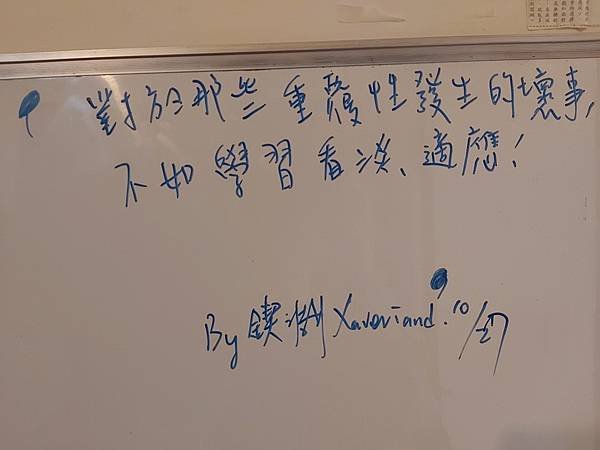 對於那些重覆性發生的壞事,
不如學習看淡、適應!
By 鍥澍 Xaveriand. 10/27